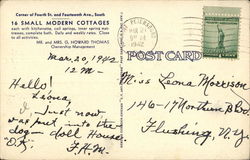 Corner of Fourth St. and Fourteenth Ave., South
16 SMALL MODERN COTTAGES
each with kitchenette, coil springs, inner spring mat-
tresses, complete bath. Daily and weekly rates. Close
to all activities.
MR. and MRS. O. HOWARD THOMAS
Ownership Management
PETERSBURG
MAR 21
1942
POST CARD
Mar. 20, 1942
12 M -
Hello!
Leona,
I just now
was put into the
dog - doll House
"OK" F.H.M.
Miss Leona Morrison
146-17 Northern Blvd
Flushing, N.Y.